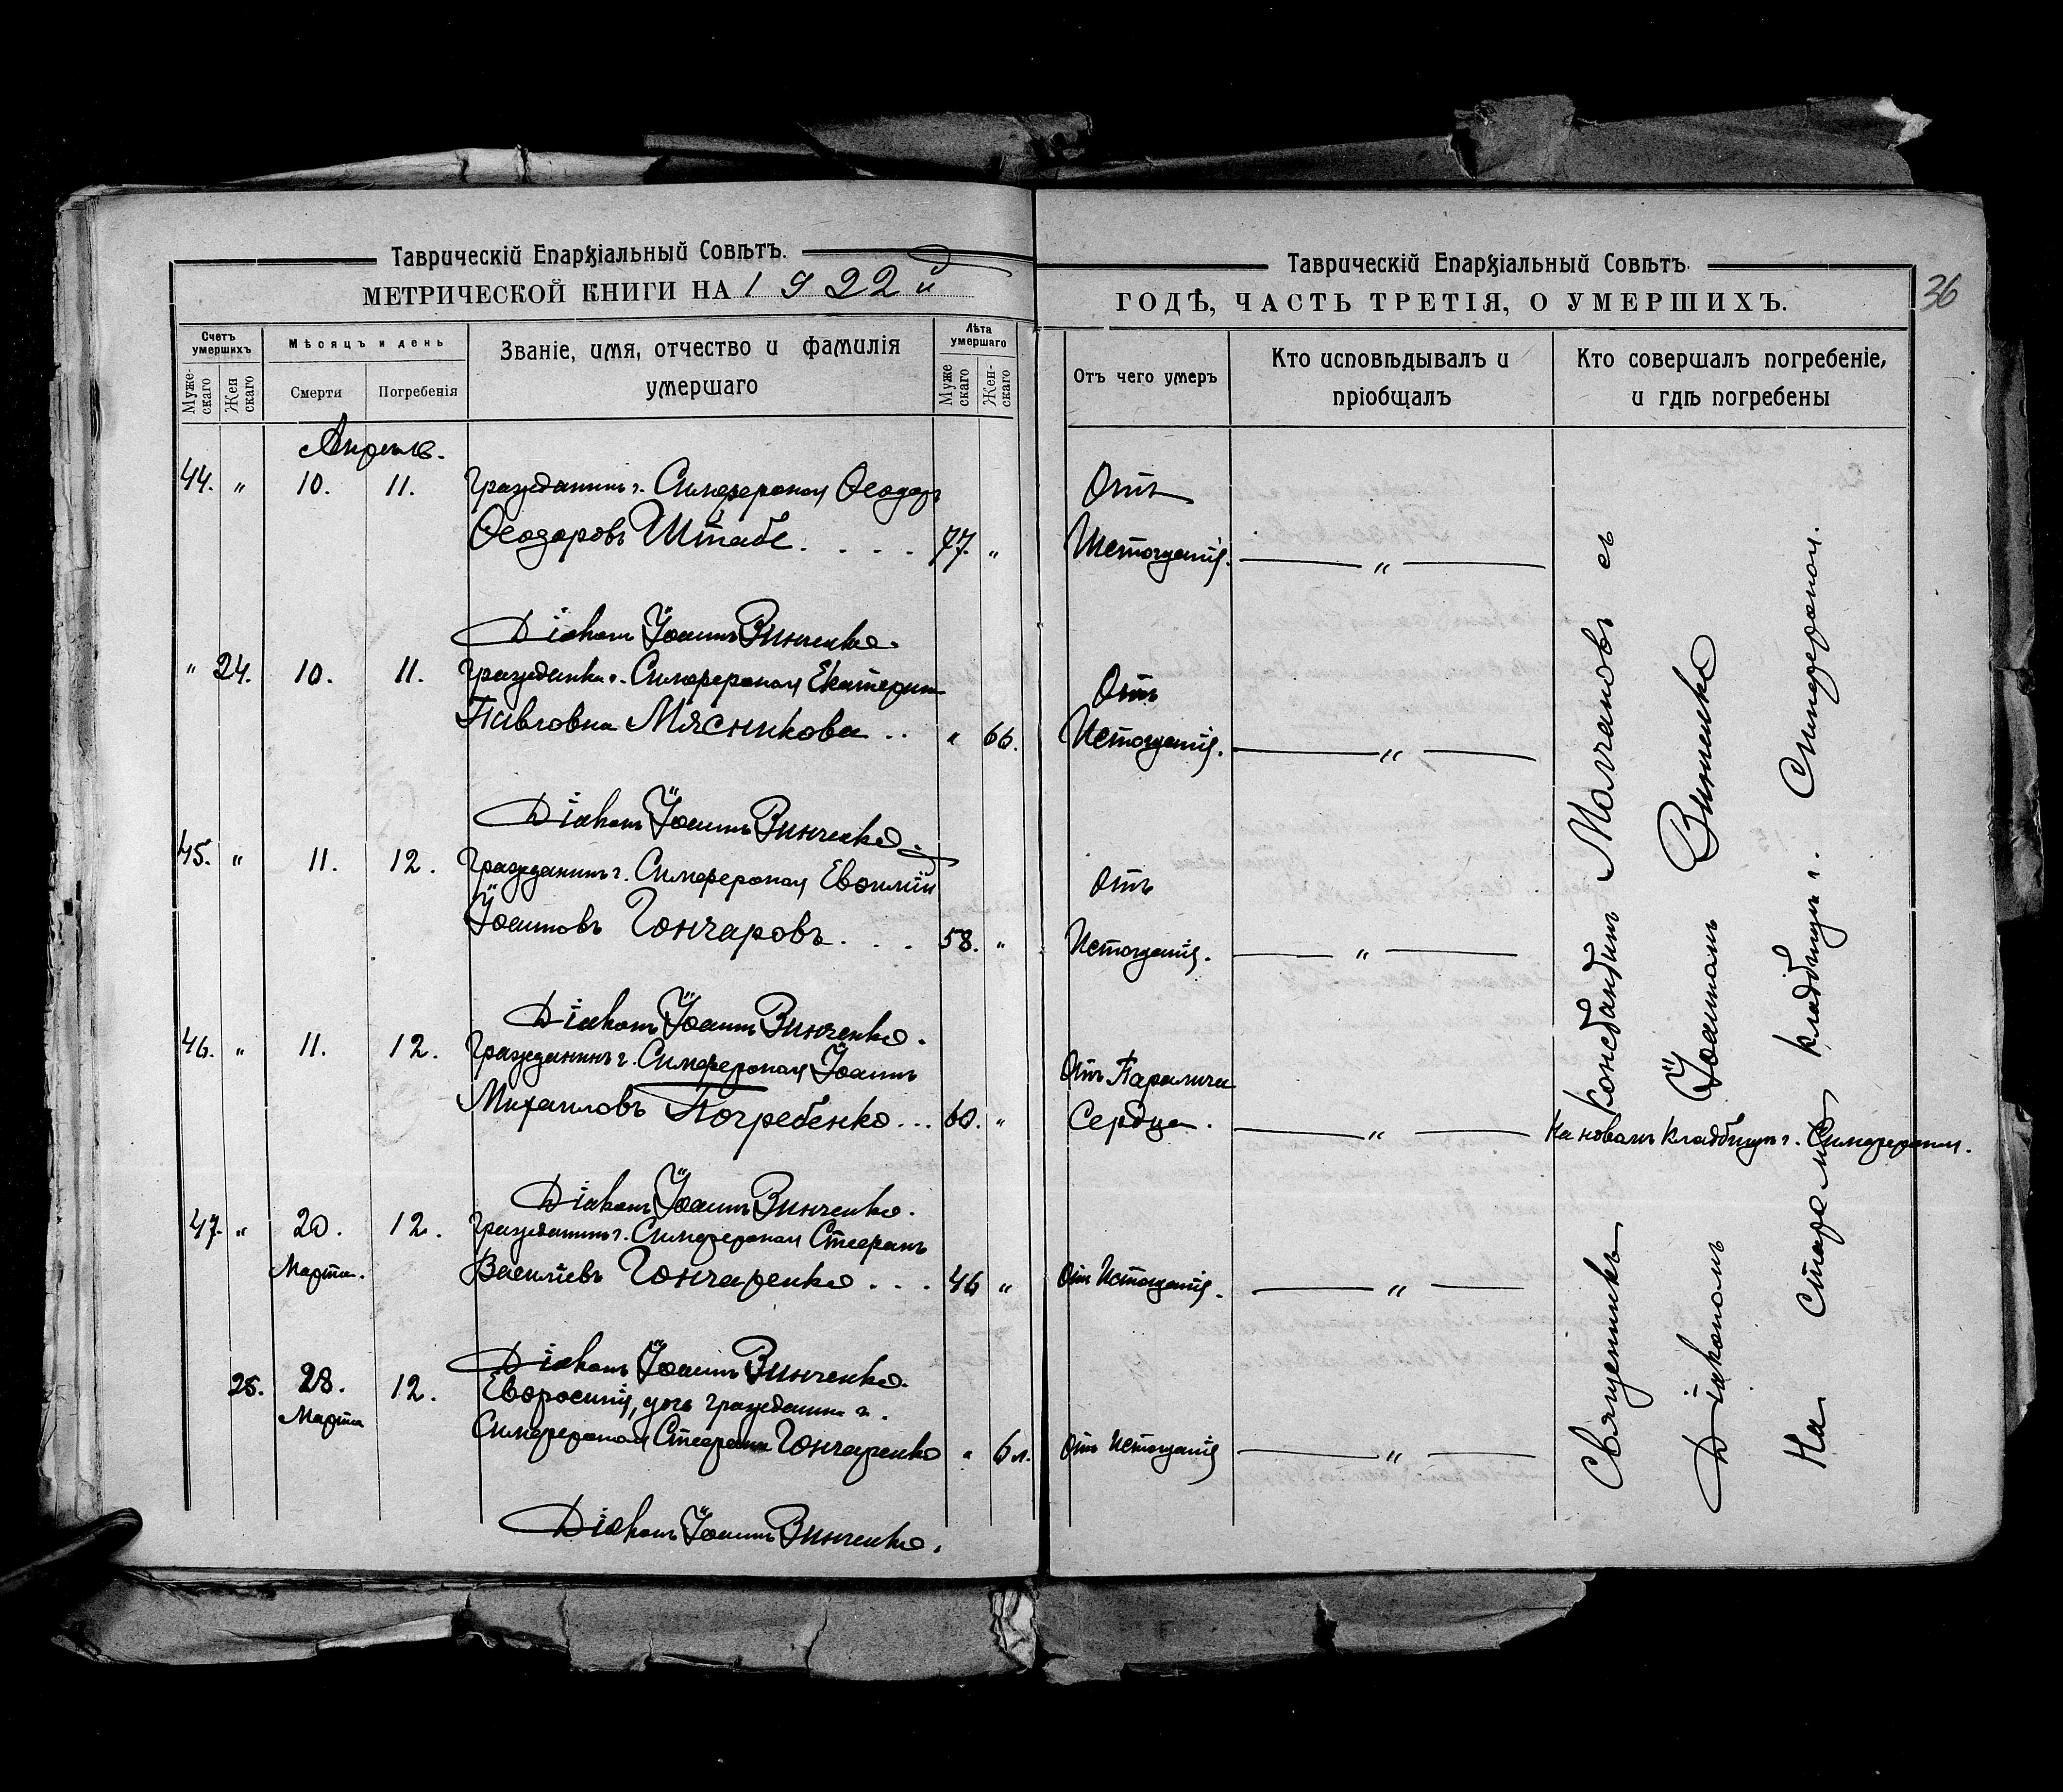 Таврическій Епархіальный Совѣтъ.
МЕТРИЧЕСКОЙ КНИГИ НА 1922 й
Счетъ умершихъ
Мѣсяцъ и день
Званіе, имя, отчество и фамилія умершаго
Лѣта умершаго
Муже-скаго
Жен скаго
Смерти
Погребенія
Муже скаго
Жен-скаго
Апрѣль.
44. „ 10. 11. Гражданинъ г. Симферополя Ѳеодоръ
Ѳеодоровъ Штабе . . . . 77. „
Діаконъ Іоаннъ Винченко.
„ 24. 10. 11. Гражданка г. Симферополя Екатерина
Павловна Мясникова . . „ 66.
Діаконъ Іоаннъ Винченко.
45. „ 11. 12. Гражданинъ г. Симферополя Евѳимій
Іоанновъ Гончаровъ . . . 58. „
Діаконъ Іоаннъ Винченко.
46. „ 11. 12. Гражданинъ г. Симферополя Іоаннъ
Михаиловъ Погребенко . . . 60. „
Діаконъ Іоаннъ Винченко.
47. „ 20. 12. Гражданинъ г. Симферополя Стефанъ
Марта. Василіевъ Гончаренко . . . 46 „
Діаконъ Іоаннъ Винченко.
25. 28. 12. Евфросинія, дочь гражданина г.
Марта Симферополя Стефана Гончаренко „ 6 л.
Діаконъ Іоаннъ Винченко.
Таврическій Епархіальный Совѣтъ.
ГОДѢ, ЧАСТЬ ТРЕТІЯ, О УМЕРШИХЪ.
36
Отъ чего умеръ
Кто исповѣдывалъ и пріобщалъ
Кто совершалъ погребеніе, и гдѣ погребены
Отъ
Истощенія. „
Отъ
Истощенія. „
Отъ
Истощенія. „
Отъ Паралича
Сердца. „ На новомъ кладбищѣ г. Симферополя.
Отъ Истощенія. „
Отъ Истощенія „
Священникъ Константинъ Молчановъ съ
Діакономъ Іоанномъ Винченко
На Старомъ кладбищѣ г. Симферополя.